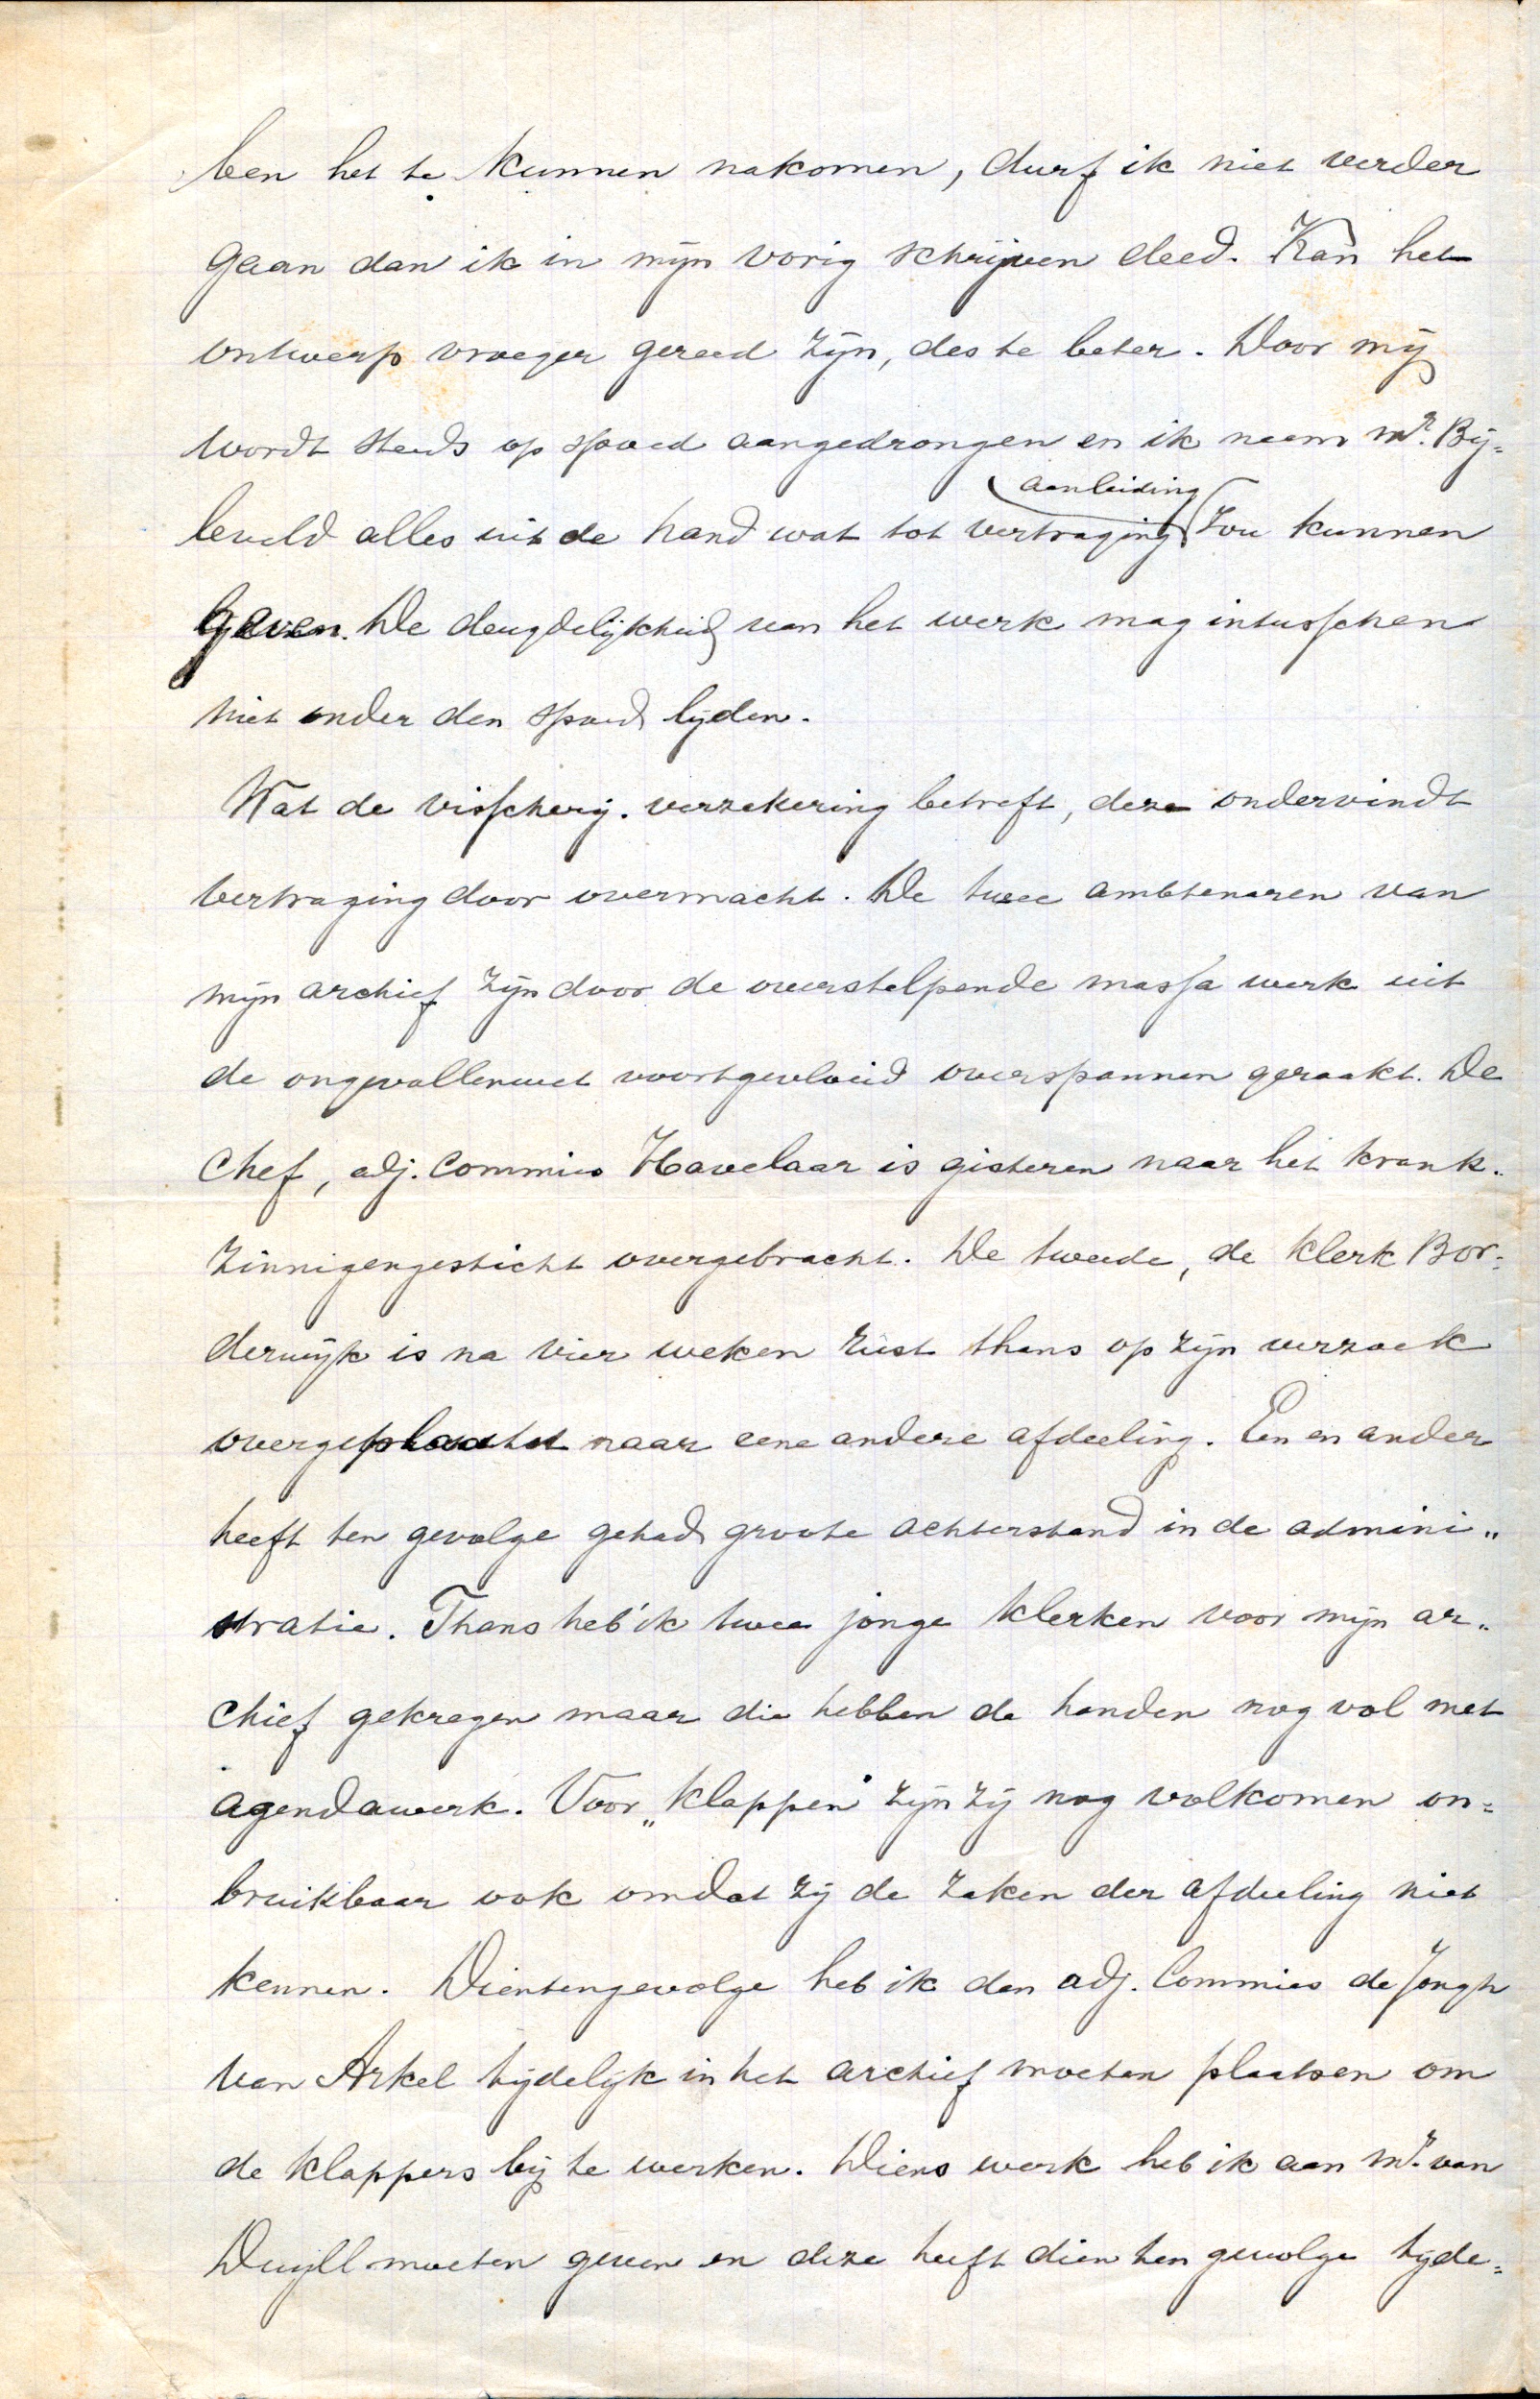 ben het te kunnen nakomen, durf ik niet verder
gaan dan ik in mijn vorig schrijven deed. Kan het
ontwerp vroeger gereed zijn, des te beter. Door mij
wordt steeds op spoed aangedrongen en ik neem Mr. Bij=
leveld alles uit de hand wat tot vertraging aanleiding zou kunnen
geven. De deugdelijkheid van het werk mag intusschen
niet onder den spoed lijden.
Wat de visscherij-verzekering betreft, deze ondervindt
vertraging door overmacht. De twee ambtenaren van
mijn archief zijn door de overstelpende massa werk uit
de ongevallenwet voortgevloeid overspannen geraakt. De
Chef, adj. commies Havelaar is gisteren naar het krank-
zinnigengesticht overgebracht. De tweede, de klerk Bor-
derwijk is na vier weken rust thans op zijn verzoek
overgeplaatst naar eene andere afdeeling. Een en ander
heeft ten gevolge gehad groote achterstand in de admini„
stratie. Thans heb ik twee jonge klerken voor mijn ar„
chief gekregen maar die hebben de handen nog vol met
agendawerk. Voor „klappen" zijn zij nog volkomen on=
bruikbaar ook omdat zij de zaken der afdeeling niet
kennen. Dientengevolge heb ik den adj. Commies de Jongh
van Arkel tijdelijk in het archief moeten plaatsen om
de klappers bij te werken. Diens werk heb ik aan Mr. van
Duyll moeten geven en deze heeft dien ten gevolge tijde=